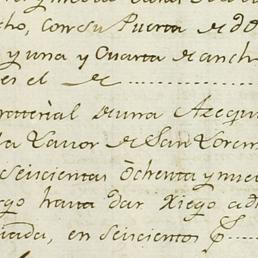 cho, con su Puerta de do
y una y Cuarta de anch
es el de
material de una Azequi
la Lavor de San Loren
Seiscientas Ochenta y nue
hasta dar Riego ad
en seiscientos p